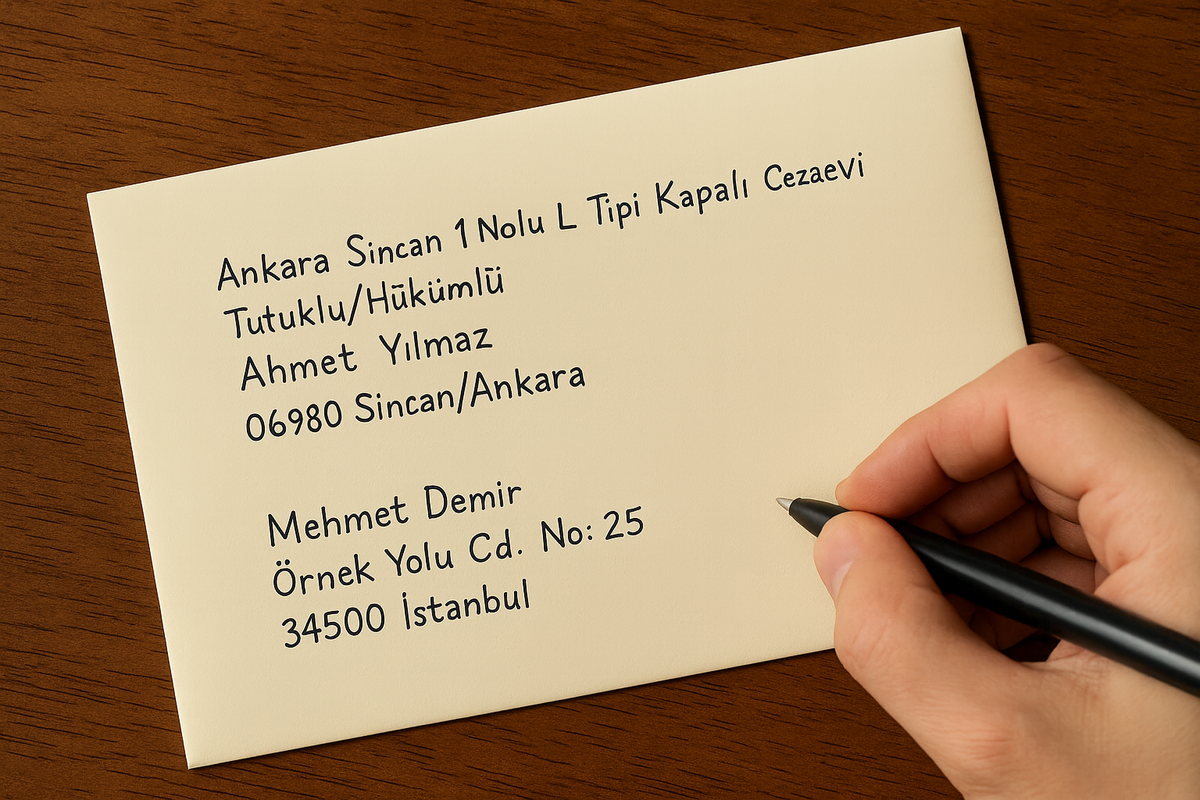 Ankara Sincan 1 Nolu L Tipi Kapalı Cezaevi
Tutuklu/Hükümlü
Ahmet Yılmaz
06980 Sincan/Ankara
Mehmet Demir
Örnek Yolu Cd. No: 25
34500 İstanbul